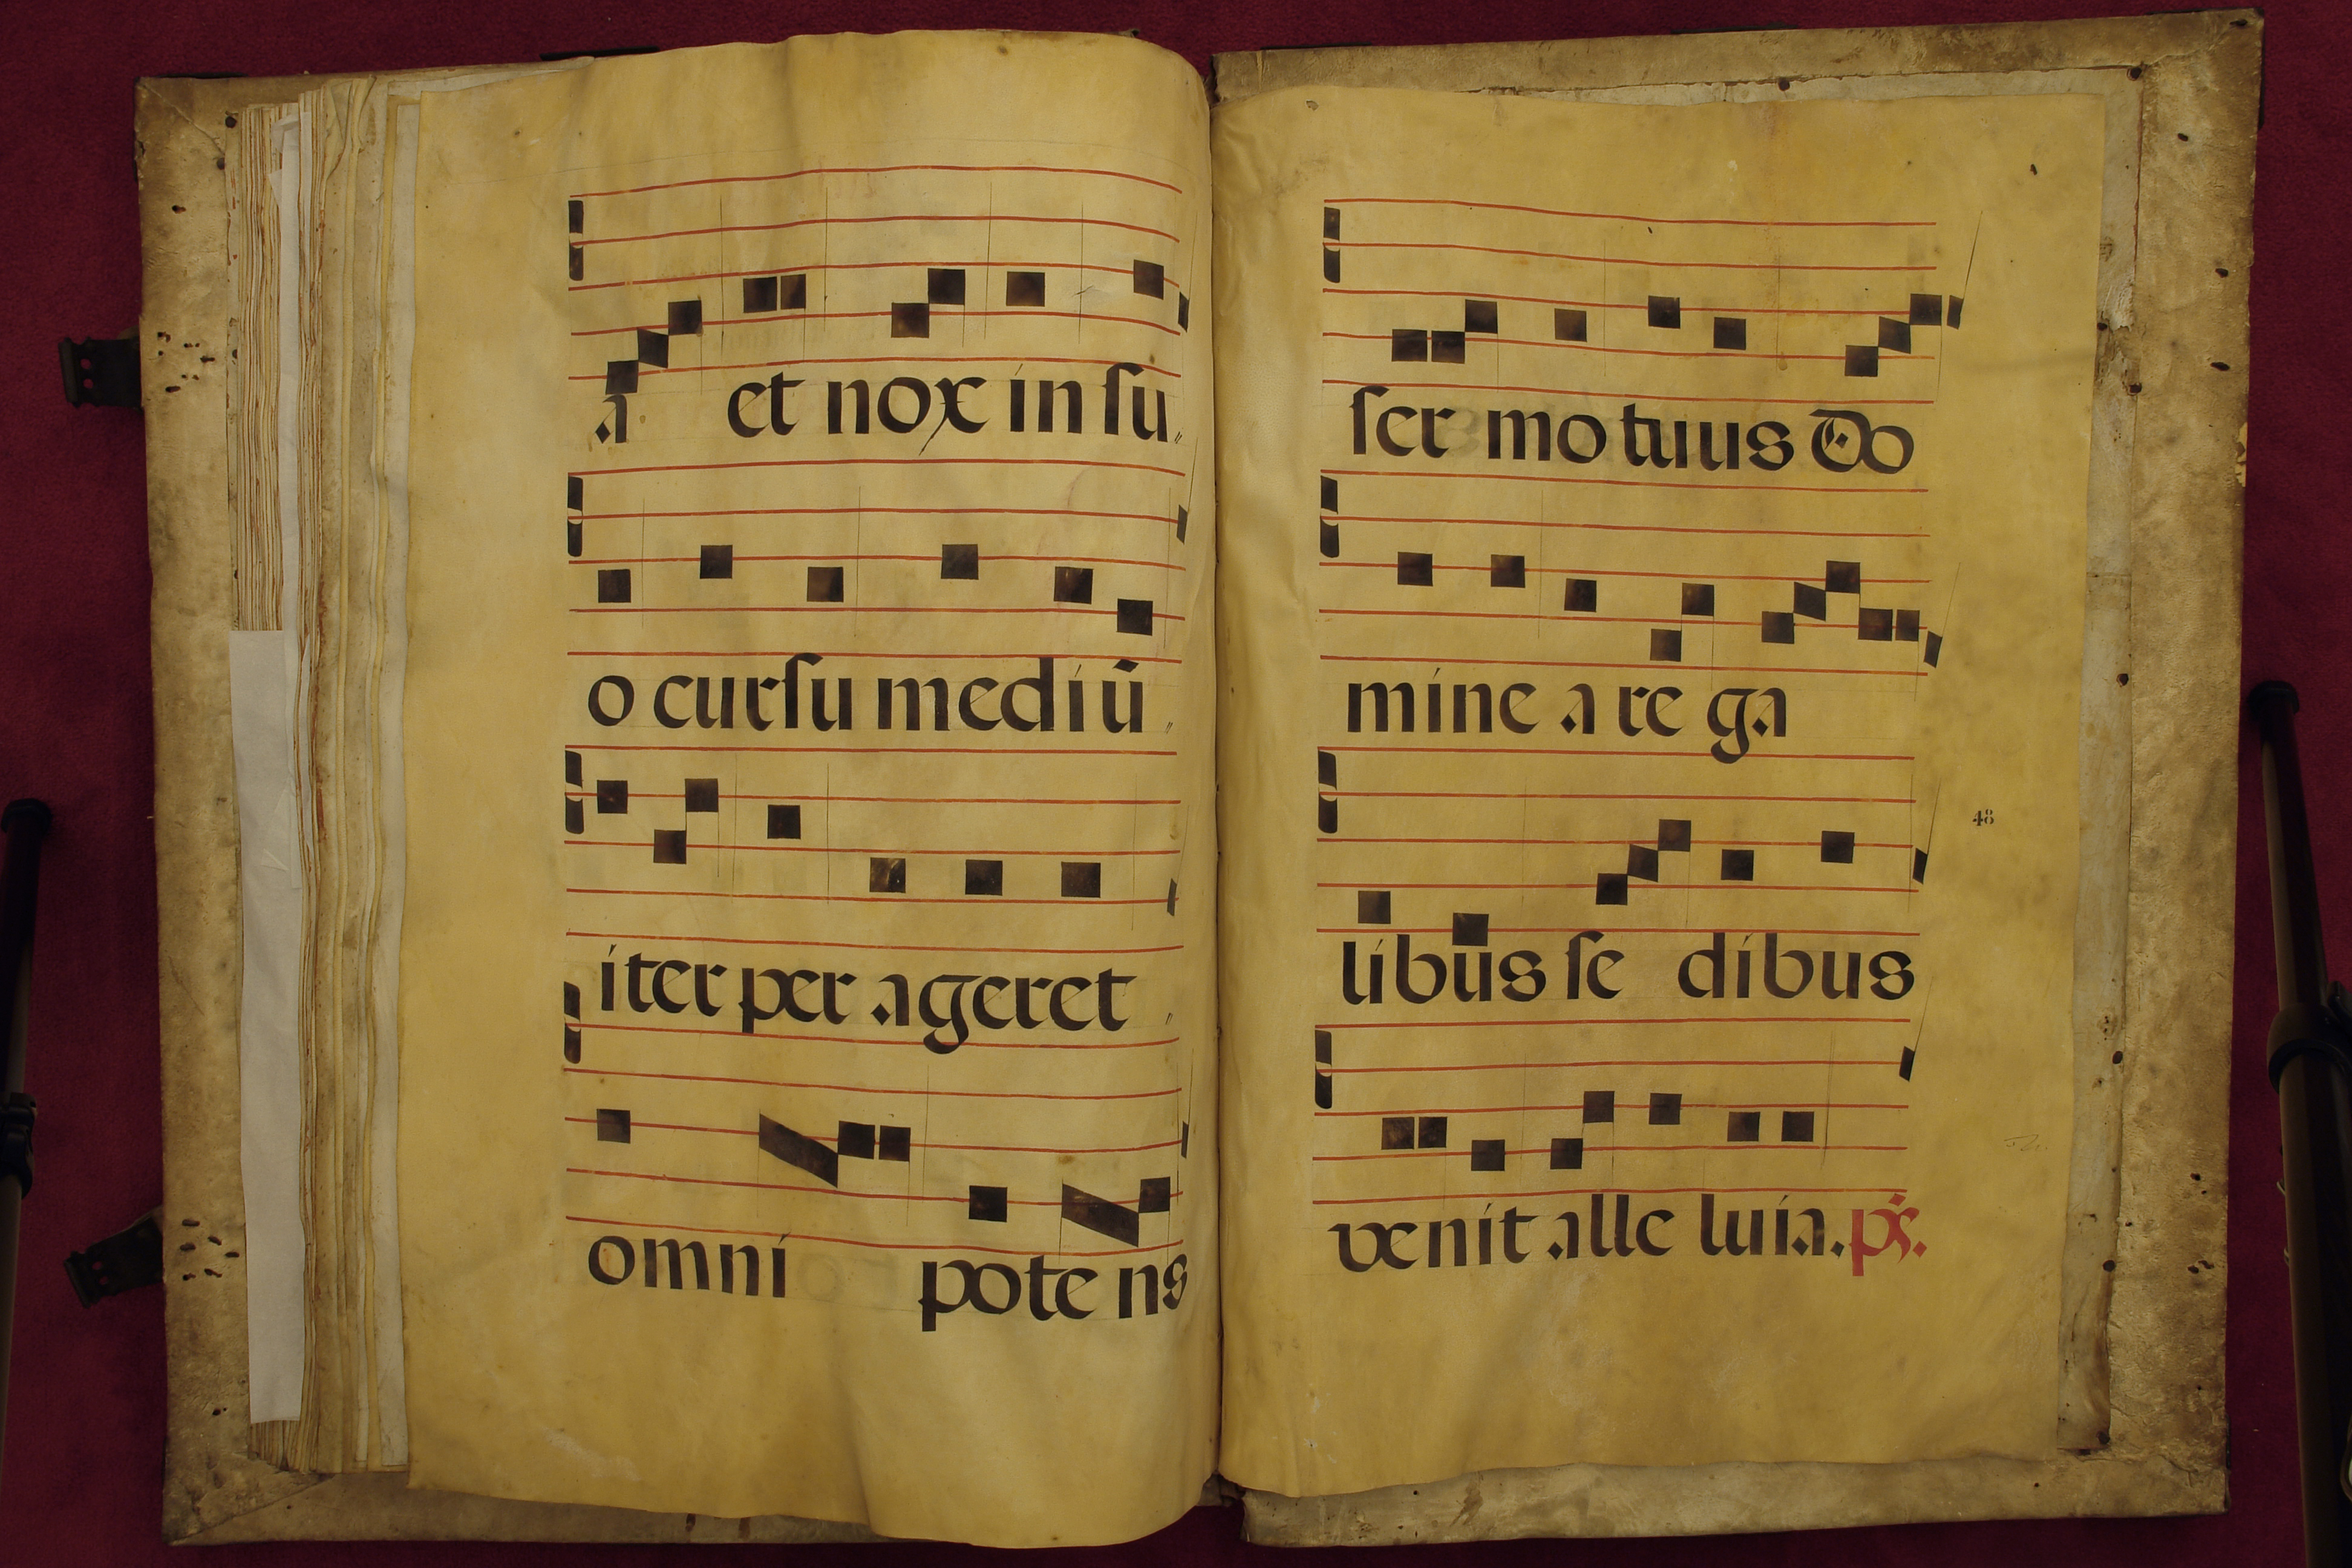 a et nox in ſu
o curſu mediū
iter per ageret
omni pote ns
ſer mo tuus Do
mine a re ga
libus ſe dibus
48
venit alle luia. ps.